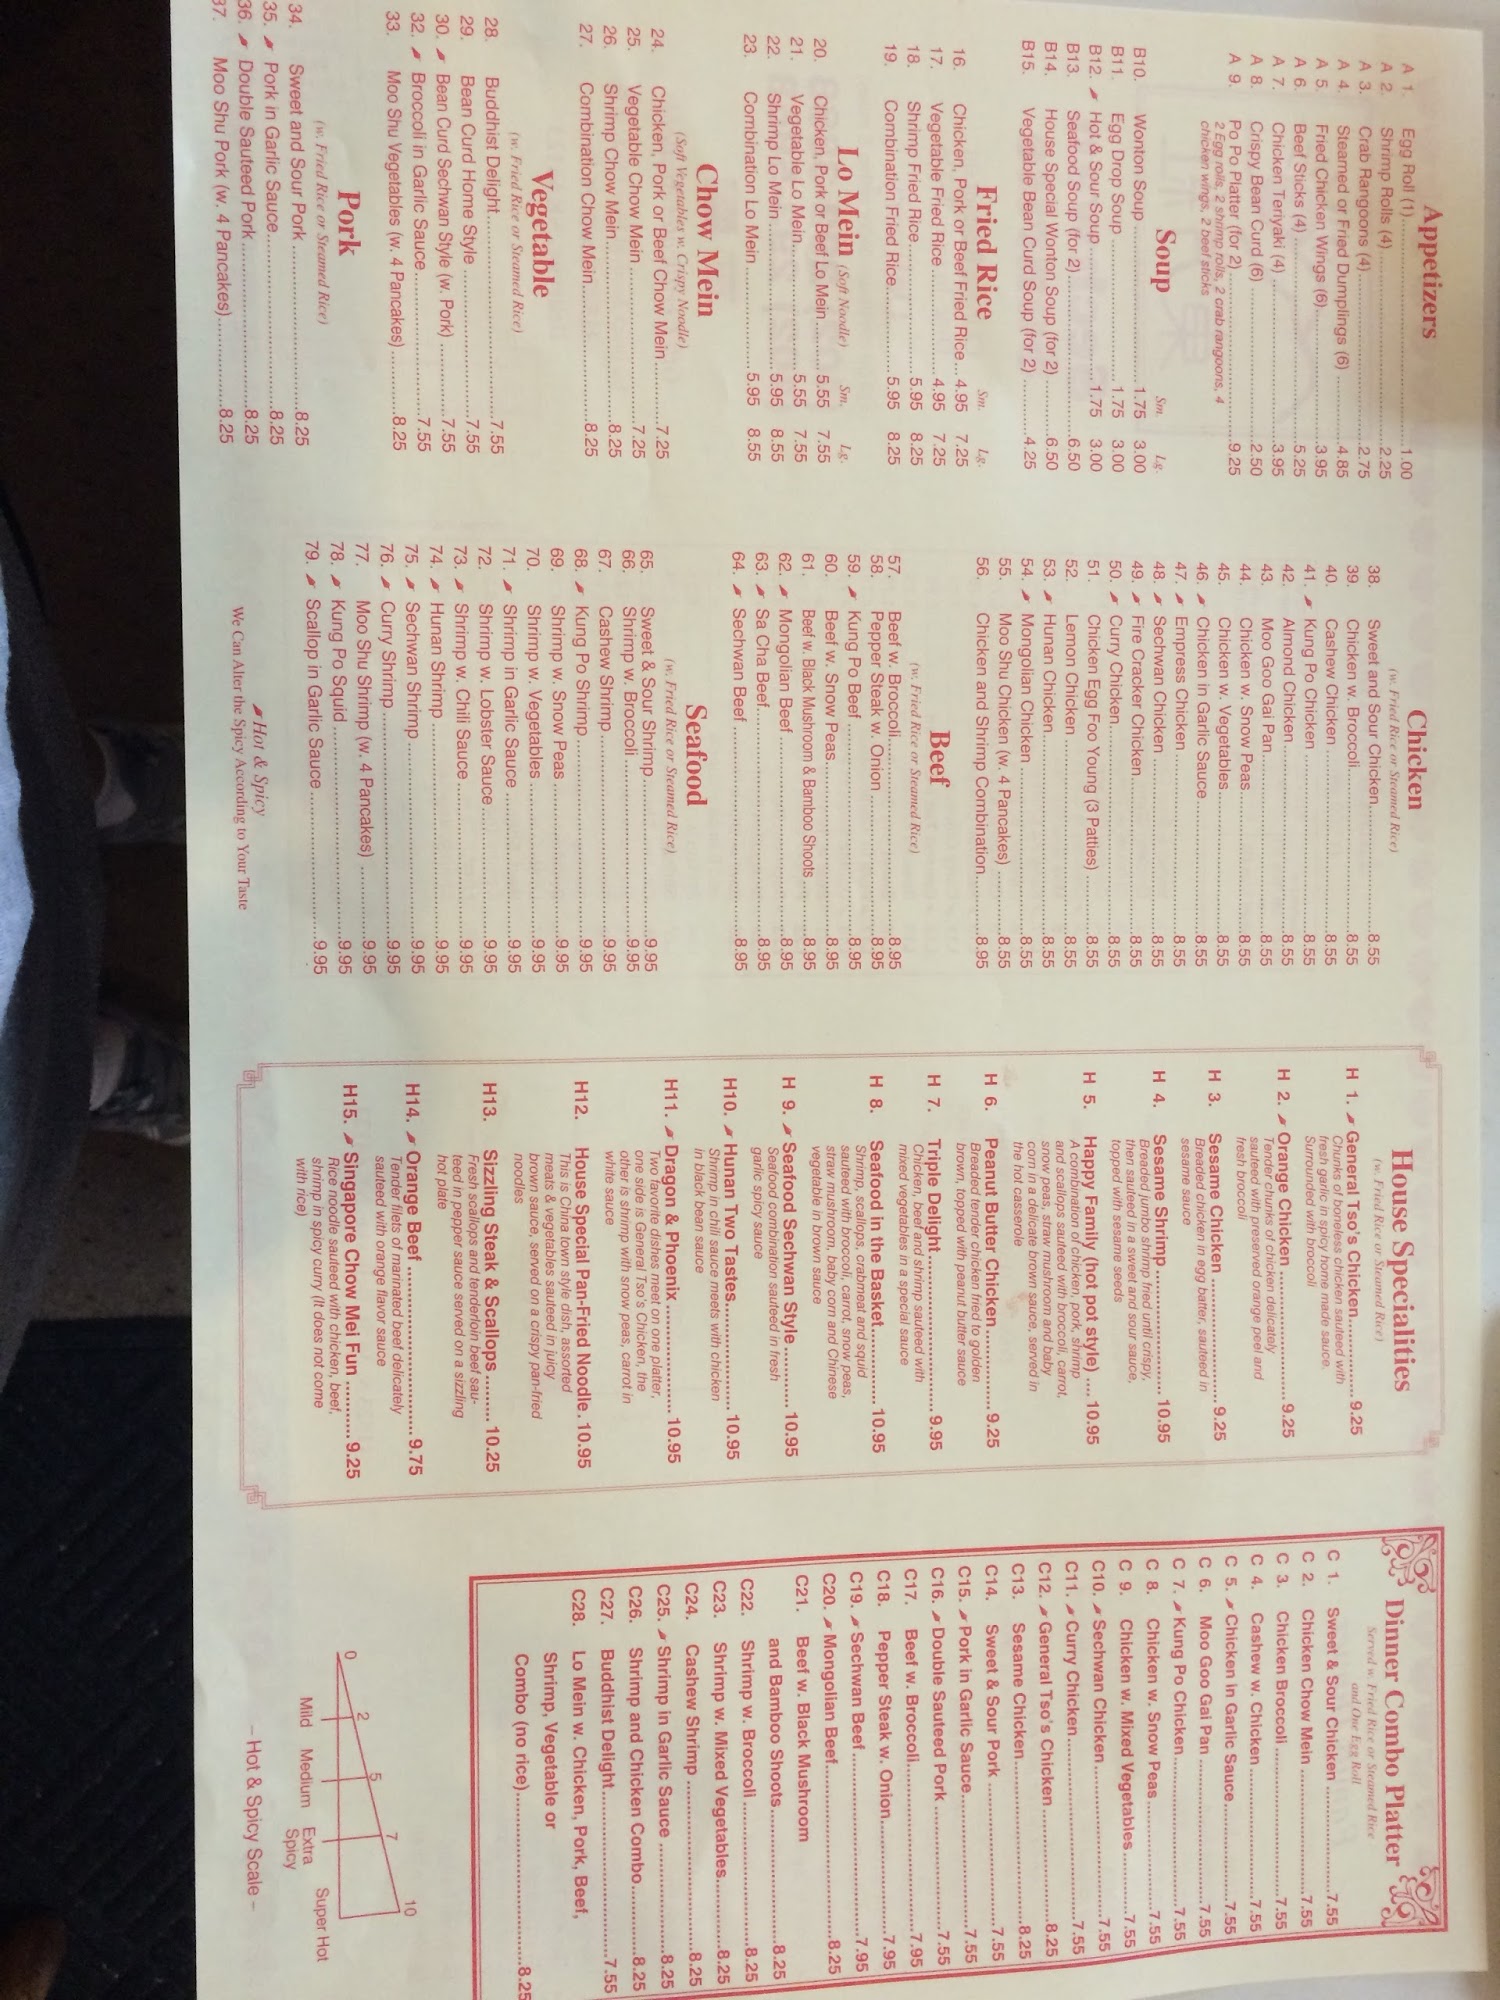 Appetizers
A 1. Egg Roll (1)..........1.00
A 2. Shrimp Rolls (4)..........2.25
A 3. Crab Rangoons (4)..........2.75
A 4. Steamed or Fried Dumplings (6)..........4.85
A 5. Fried Chicken Wings (6)..........3.95
A 6. Beef Sticks (4)..........5.25
A 7. Chicken Teriyaki (4)..........3.95
A 8. Crispy Bean Curd (6)..........2.50
A 9. Po Po Platter (for 2)..........9.25
2 Egg rolls, 2 shrimp rolls, 2 crab rangoons, 4
chicken wings, 2 beef sticks
Soup Sm. Lg.
B10. Wonton Soup..........1.75 3.00
B11. Egg Drop Soup..........1.75 3.00
B12. Hot & Sour Soup..........1.75 3.00
B13. Seafood Soup (for 2)..........6.50
B14. House Special Wonton Soup (for 2)..........6.50
B15. Vegetable Bean Curd Soup (for 2)..........4.25
Fried Rice Sm. Lg.
16. Chicken, Pork or Beef Fried Rice..4.95 7.25
17. Vegetable Fried Rice..........4.95 7.25
18. Shrimp Fried Rice..........5.95 8.25
19. Combination Fried Rice..........5.95 8.25
Lo Mein (Soft Noodle) Sm. Lg.
20. Chicken, Pork or Beef Lo Mein......5.55 7.55
21. Vegetable Lo Mein..........5.55 7.55
22. Shrimp Lo Mein..........5.95 8.55
23. Combination Lo Mein..........5.95 8.55
Chow Mein
(Soft Vegetables w. Crispy Noodle)
24. Chicken, Pork or Beef Chow Mein..........7.25
25. Vegetable Chow Mein..........7.25
26. Shrimp Chow Mein..........8.25
27. Combination Chow Mein..........8.25
Vegetable
(w. Fried Rice or Steamed Rice)
28. Buddhist Delight..........7.55
29. Bean Curd Home Style..........7.55
30. Bean Curd Sechwan Style (w. Pork)..........7.55
32. Broccoli in Garlic Sauce..........7.55
33. Moo Shu Vegetables (w. 4 Pancakes)..........8.25
Pork
(w. Fried Rice or Steamed Rice)
34. Sweet and Sour Pork..........8.25
35. Pork in Garlic Sauce..........8.25
36. Double Sauteed Pork..........8.25
37. Moo Shu Pork (w. 4 Pancakes)..........8.25
Chicken
(w. Fried Rice or Steamed Rice)
38. Sweet and Sour Chicken..........8.55
39. Chicken w. Broccoli..........8.55
40. Cashew Chicken..........8.55
41. Kung Po Chicken..........8.55
42. Almond Chicken..........8.55
43. Moo Goo Gai Pan..........8.55
44. Chicken w. Snow Peas..........8.55
45. Chicken w. Vegetables..........8.55
46. Chicken in Garlic Sauce..........8.55
47. Empress Chicken..........8.55
48. Sechwan Chicken..........8.55
49. Fire Cracker Chicken..........8.55
50. Curry Chicken..........8.55
51. Chicken Egg Foo Young (3 Patties)..........8.55
52. Lemon Chicken..........8.55
53. Hunan Chicken..........8.55
54. Mongolian Chicken..........8.55
55. Moo Shu Chicken (w. 4 Pancakes)..........8.55
56. Chicken and Shrimp Combination..........8.95
Beef
(w. Fried Rice or Steamed Rice)
57. Beef w. Broccoli..........8.95
58. Pepper Steak w. Onion..........8.95
59. Kung Po Beef..........8.95
60. Beef w. Snow Peas..........8.95
61. Beef w. Black Mushroom & Bamboo Shoots..........8.95
62. Mongolian Beef..........8.95
63. Sa Cha Beef..........8.95
64. Sechwan Beef..........8.95
Seafood
(w. Fried Rice or Steamed Rice)
65. Sweet & Sour Shrimp..........9.95
66. Shrimp w. Broccoli..........9.95
67. Cashew Shrimp..........9.95
68. Kung Po Shrimp..........9.95
69. Shrimp w. Snow Peas..........9.95
70. Shrimp w. Vegetables..........9.95
71. Shrimp in Garlic Sauce..........9.95
72. Shrimp w. Lobster Sauce..........9.95
73. Shrimp w. Chili Sauce..........9.95
74. Hunan Shrimp..........9.95
75. Sechwan Shrimp..........9.95
76. Curry Shrimp..........9.95
77. Moo Shu Shrimp (w. 4 Pancakes)..........9.95
78. Kung Po Squid..........9.95
79. Scallop in Garlic Sauce..........9.95
Hot & Spicy
We Can Alter the Spicy According to Your Taste
House Specialities
(w. Fried Rice or Steamed Rice)
H 1. General Tso's Chicken..........9.25
Chunks of boneless chicken sauteed with
fresh garlic in spicy home made sauce.
Surrounded with broccoli
H 2. Orange Chicken..........9.25
Tender chunks of chicken delicately
sauteed with preserved orange peel and
fresh broccoli
H 3. Sesame Chicken..........9.25
Breaded chicken in egg batter, sauteed in
sesame sauce
H 4. Sesame Shrimp..........10.95
Breaded jumbo shrimp fried until crispy,
then sauteed in a sweet and sour sauce,
topped with sesame seeds
H 5. Happy Family (hot pot style)....10.95
A combination of chicken, pork, shrimp
and scallops sauteed with broccoli, carrot,
snow peas, straw mushroom and baby
corn in a delicate brown sauce, served in
the hot casserole
H 6. Peanut Butter Chicken..........9.25
Breaded tender chicken fried to golden
brown, topped with peanut butter sauce
H 7. Triple Delight..........9.95
Chicken, beef and shrimp sauteed with
mixed vegetables in a special sauce
H 8. Seafood in the Basket..........10.95
Shrimp, scallops, crabmeat and squid
sauteed with broccoli, carrot, snow peas,
straw mushroom, baby corn and Chinese
vegetable in brown sauce
H 9. Seafood Sechwan Style..........10.95
Seafood combination sauteed in fresh
garlic spicy sauce
H10. Hunan Two Tastes..........10.95
Shrimp in chili sauce meets with chicken
in black bean sauce
H11. Dragon & Phoenix..........10.95
Two favorite dishes meet on one platter,
one side is General Tso's Chicken, the
other is shrimp with snow peas, carrot in
white sauce
H12. House Special Pan-Fried Noodle.10.95
This is China town style dish, assorted
meats & vegetables sauteed in juicy
brown sauce, served on a crispy pan-fried
noodles
H13. Sizzling Steak & Scallops........10.25
Fresh scallops and tenderloin beef sau-
teed in pepper sauce served on a sizzling
hot plate
H14. Orange Beef..........9.75
Tender filets of marinated beef delicately
sauteed with orange flavor sauce
H15. Singapore Chow Mei Fun..........9.25
Rice noodle sauteed with chicken, beef,
shrimp in spicy curry (It does not come
with rice)
Dinner Combo Platter
Served w. Fried Rice or Steamed Rice
and One Egg Roll
C 1. Sweet & Sour Chicken..........7.55
C 2. Chicken Chow Mein..........7.55
C 3. Chicken Broccoli..........7.55
C 4. Cashew w. Chicken..........7.55
C 5. Chicken in Garlic Sauce..........7.55
C 6. Moo Goo Gai Pan..........7.55
C 7. Kung Po Chicken..........7.55
C 8. Chicken w. Snow Peas..........7.55
C 9. Chicken w. Mixed Vegetables..........7.55
C10. Sechwan Chicken..........7.55
C11. Curry Chicken..........7.55
C12. General Tso's Chicken..........8.25
C13. Sesame Chicken..........8.25
C14. Sweet & Sour Pork..........7.55
C15. Pork in Garlic Sauce..........7.55
C16. Double Sauteed Pork..........7.55
C17. Beef w. Broccoli..........7.95
C18. Pepper Steak w. Onion..........7.95
C19. Sechwan Beef..........7.95
C20. Mongolian Beef..........8.25
C21. Beef w. Black Mushroom
and Bamboo Shoots..........8.25
C22. Shrimp w. Broccoli..........8.25
C23. Shrimp w. Mixed Vegetables..........8.25
C24. Cashew Shrimp..........8.25
C25. Shrimp in Garlic Sauce..........8.25
C26. Shrimp and Chicken Combo..........8.25
C27. Buddhist Delight..........7.55
C28. Lo Mein w. Chicken, Pork, Beef,
Shrimp, Vegetable or
Combo (no rice)..........8.25
0 2 5 7 10
Mild Medium Extra Spicy Super Hot
– Hot & Spicy Scale –